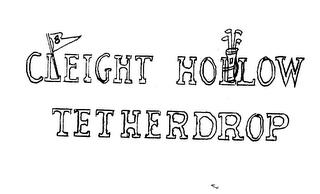 8
CLEIGHT HOLLOW
TETHERDROP